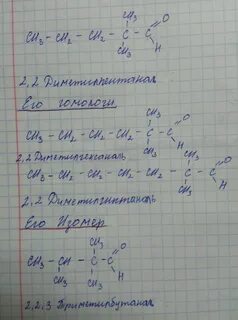 CH₃
CH₃ - CH₂ - CH₂ - C - C
O
CH₃
H
2,2 Диметилпентаналь
Его гомологи
CH₃
O
CH₃ - CH₂ - CH₂ - CH₂ - C - C
CH₃
H
2,2 Диметилгексаналь
CH₃
O
CH₃ - CH₂ - CH₂ - CH₂ - CH₂ - C - C
CH₃
H
2,2 Диметилгептаналь
Его Изомер
CH₃
O
CH₃ - CH - C - C
CH₃
CH₃
H
2,2,3 Триметилбутаналь